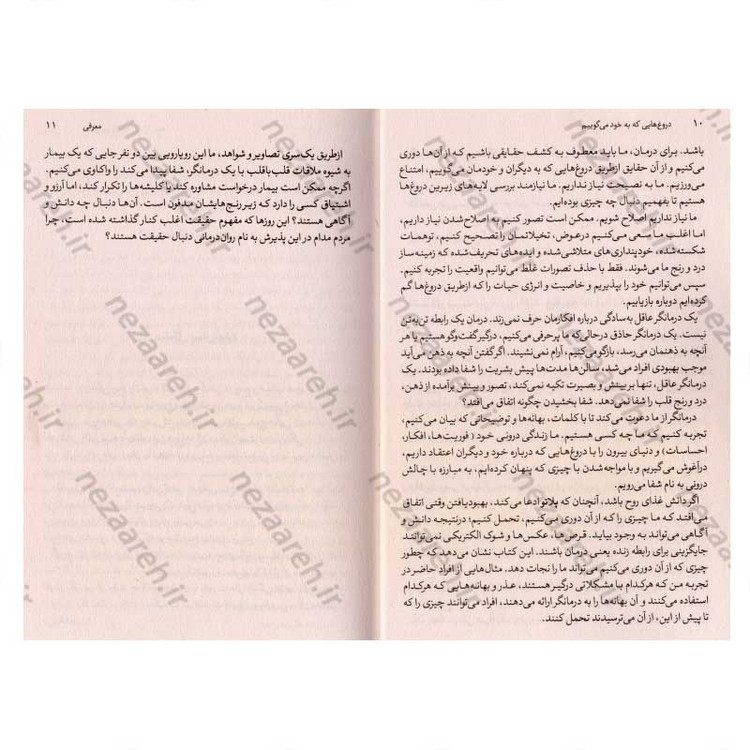 ۱۰ دروغ‌هایی که به خود می‌گوییم
باشد. برای درمان، ما باید معطوف به کشف حقایقی باشیم که از آن‌ها دوری
می‌کنیم و از آن حقایق ازطریق دروغ‌هایی که به دیگران و خودمان می‌گوییم، امتناع
می‌ورزیم. ما به نصیحت نیاز نداریم. ما نیازمند بررسی لایه‌های زیرین دروغ‌ها
هستیم تا بفهمیم دنبال چه چیزی بوده‌ایم.
ما نیاز نداریم اصلاح شویم. ممکن است تصور کنیم به اصلاح‌شدن نیاز داریم،
اما اغلب ما سعی می‌کنیم درعوض، تخیلاتمان را تصحیح کنیم، توهمات
شکسته‌شده، خودپنداری‌های متلاشی‌شده و ایده‌های تحریف‌شده که زمینه‌ساز
درد و رنج ما می‌شوند. فقط با حذف تصورات غلط می‌توانیم واقعیت را تجربه کنیم.
سپس می‌توانیم خود را بپذیریم و خاصیت و انرژی حیات را که ازطریق دروغ‌ها گم
کرده‌ایم دوباره بازیابیم.
یک درمانگر عاقل به‌سادگی درباره افکارمان حرف نمی‌زند. درمان یک رابطه تن‌به‌تن
نیست. یک درمانگر حاذق درحالی‌که ما پرحرفی می‌کنیم، درگیر گفت‌وگو هستیم یا هر
آنچه به ذهنمان می‌رسد، بازگو می‌کنیم، آرام نمی‌نشیند. اگر گفتن آنچه به ذهن می‌آید
موجب بهبودی افراد می‌شد، سالن‌ها مدت‌ها پیش بشریت را شفا داده بودند. یک
درمانگر عاقل، تنها بر بینش و بصیرت تکیه نمی‌کند، تصور و بینش برآمده از ذهن،
درد و رنج قلب را شفا نمی‌دهد. شفا بخشیدن چگونه اتفاق می‌افتد؟
درمانگر از ما دعوت می‌کند تا با کلمات، بهانه‌ها و توضیحاتی که بیان می‌کنیم،
تجربه کنیم که ما چه کسی هستیم. ما زندگی درونی خود (فوریت‌ها، افکار،
احساسات) و دنیای بیرون را با دروغ‌هایی که درباره خود و دیگران اعتقاد داریم،
درآغوش می‌گیریم و با مواجه‌شدن با چیزی که پنهان کرده‌ایم، به مبارزه با چالش
درونی به نام شفا می‌رویم.
اگر دانش غذای روح باشد، آنچنان که پلاتو ادعا می‌کند، بهبودیافتن وقتی اتفاق
می‌افتد که ما چیزی را که از آن دوری می‌کنیم، تحمل کنیم؛ درنتیجه دانش و
آگاهی می‌تواند به وجود بیاید. قرص‌ها، عکس‌ها و شوک الکتریکی نمی‌توانند
جایگزینی برای رابطه زنده یعنی درمان باشند. این کتاب نشان می‌دهد که چطور
چیزی که از آن دوری می‌کنیم می‌تواند ما را نجات دهد. مثال‌هایی از افراد حاضر در
تجربه من که هرکدام با مشکلاتی درگیر هستند، عذر و بهانه‌هایی که هرکدام
استفاده می‌کنند و آن بهانه‌ها را به درمانگر ارائه می‌دهند، افراد می‌توانند چیزی را که
تا پیش از این، از آن می‌ترسیدند تحمل کنند.
معرفی ۱۱
ازطریق یک‌سری تصاویر و شواهد، ما این رویارویی بین دو نفر جایی که یک بیمار
به شیوه ملاقات قلب‌باقلب با یک درمانگر، شفا پیدا می‌کند را واکاوی می‌کنیم.
اگرچه ممکن است بیمار درخواست مشاوره کند یا کلیشه‌ها را تکرار کند، اما آرزو و
اشتیاق کسی را دارد که زیر رنج‌هایشان مدفون است. آن‌ها دنبال چه دانش و
آگاهی هستند؟ این روزها که مفهوم حقیقت اغلب کنار گذاشته شده است، چرا
مردم مدام در این پذیرش به نام روان‌درمانی دنبال حقیقت هستند؟
nezaareh.ir
nezaareh.ir
nezaareh.ir
nezaareh.ir
nezaareh.ir
nezaareh.ir
nezaareh.ir
nezaareh.ir
nezaareh.ir